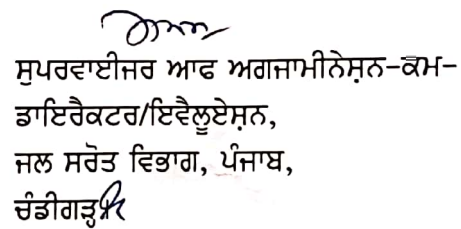 ਸੁਪਰਵਾਈਜਰ ਆਫ ਅਗਜਾਮੀਨੇਸ਼ਨ-ਕਮ-
ਡਾਇਰੈਕਟਰ/ਇਵੈਲੂਏਸ਼ਨ,
ਜਲ ਸਰੋਤ ਵਿਭਾਗ, ਪੰਜਾਬ,
ਚੰਡੀਗੜ੍ਹ